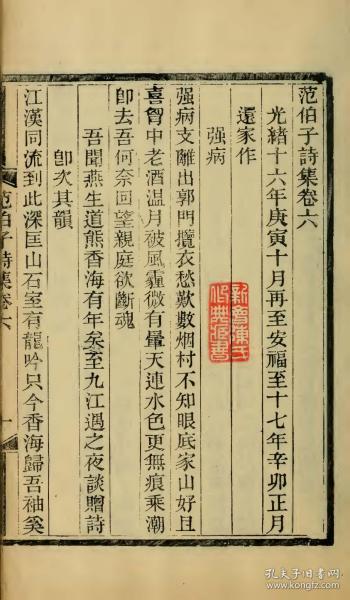 范伯子詩集卷六
光緒十六年庚寅十月再至安福至十七年辛卯正月
還家作
强病
强病支離出郭門攬衣愁歎數烟村不知眼底家山好且
喜胷中老酒温月被風霾微有暈天連水色更無痕乘潮
卽去吾何奈回望親庭欲斷魂
吾聞燕生道熊香海有年矣至九江過之夜談贈詩
卽次其韻
江漢同流到此深匡山石室有龍吟只今香海歸吾袖奚
范伯子詩集卷六
一
孔夫子旧书网